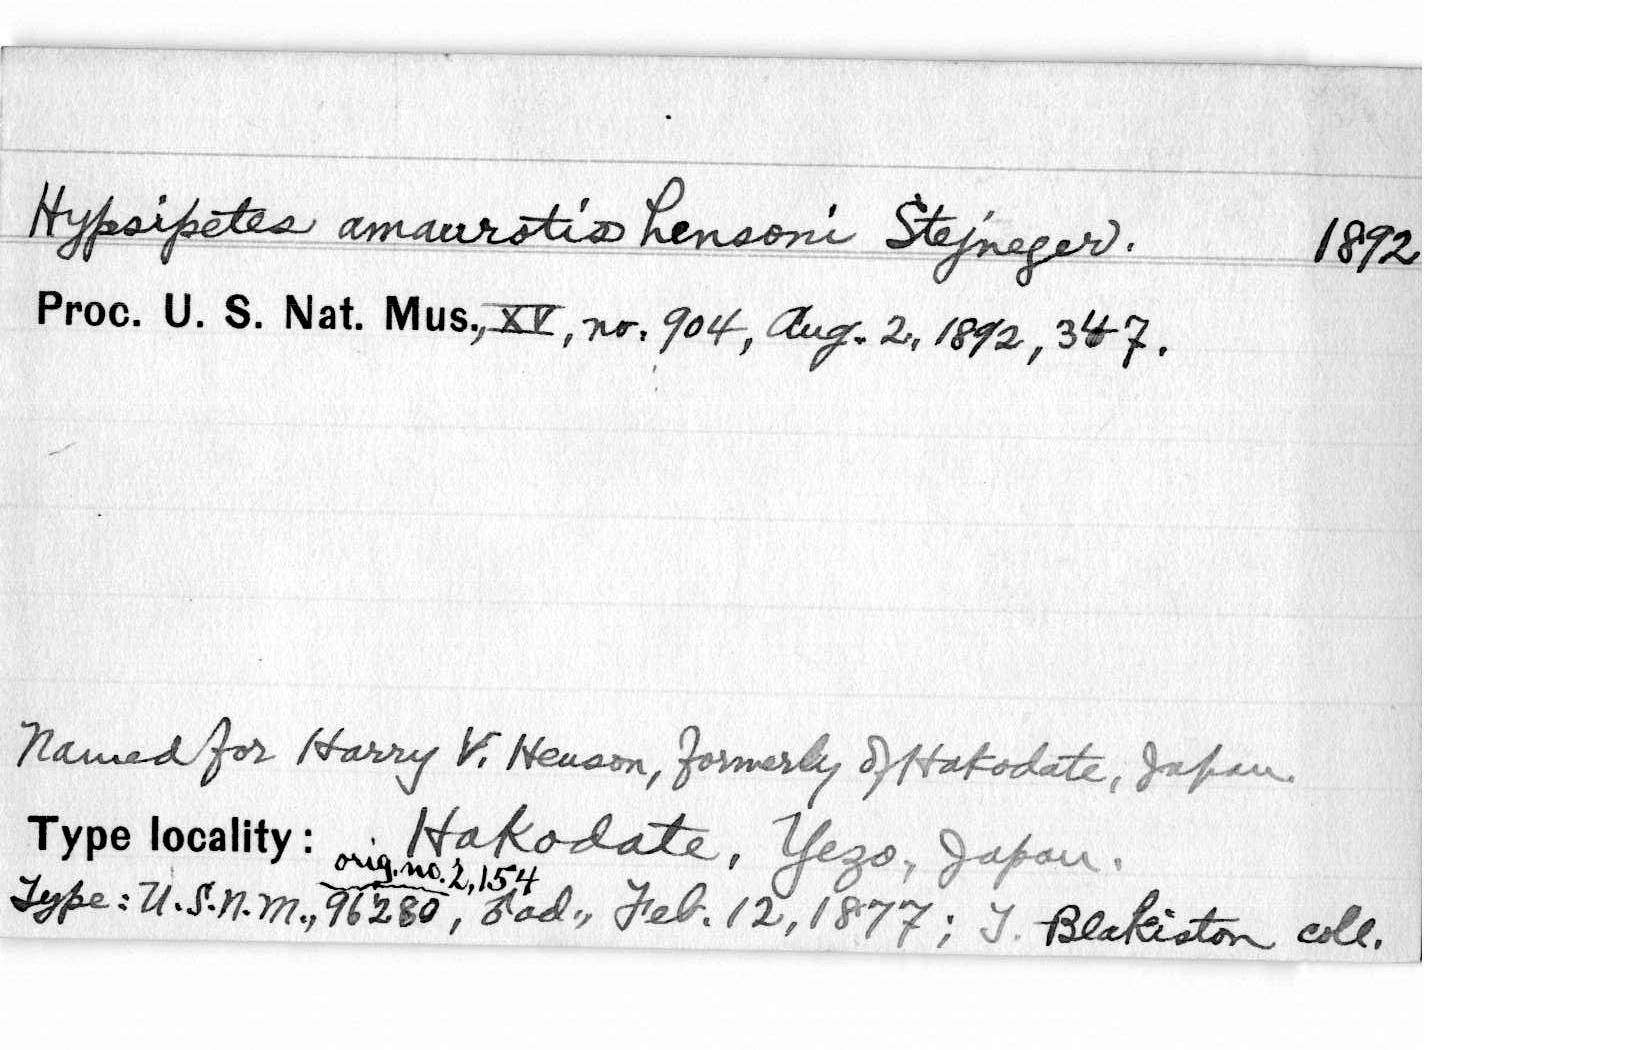 Hypsipetes amaurotis hensoni Stejneger. 1892
Proc. U. S. Nat. Mus., XV, no. 904, Aug. 2, 1892, 347.
Named for Harry V. Henson, formerly of Hakodate, Japan.
Type locality: Hakodate, Yezo, Japan.
orig. no. 2,154
Type: U.S.N.M., 96280, ad., Feb. 12, 1877; T. Blakiston coll.